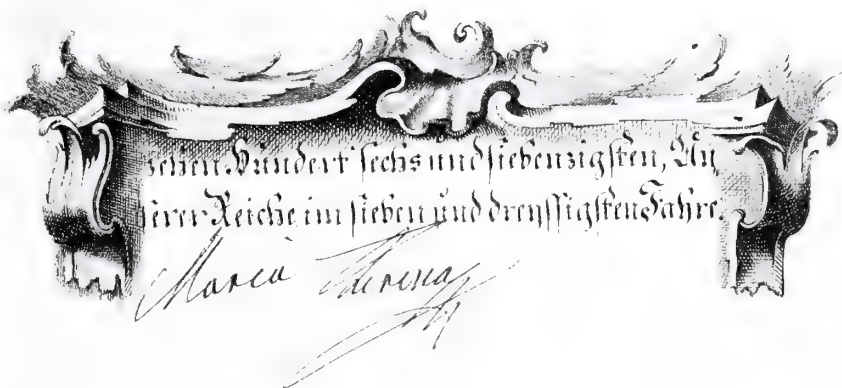 zehen Hundert sechs und siebenzigsten, Un
serer Reiche im sieben und dreyssigsten Jahre.
Maria Theresia